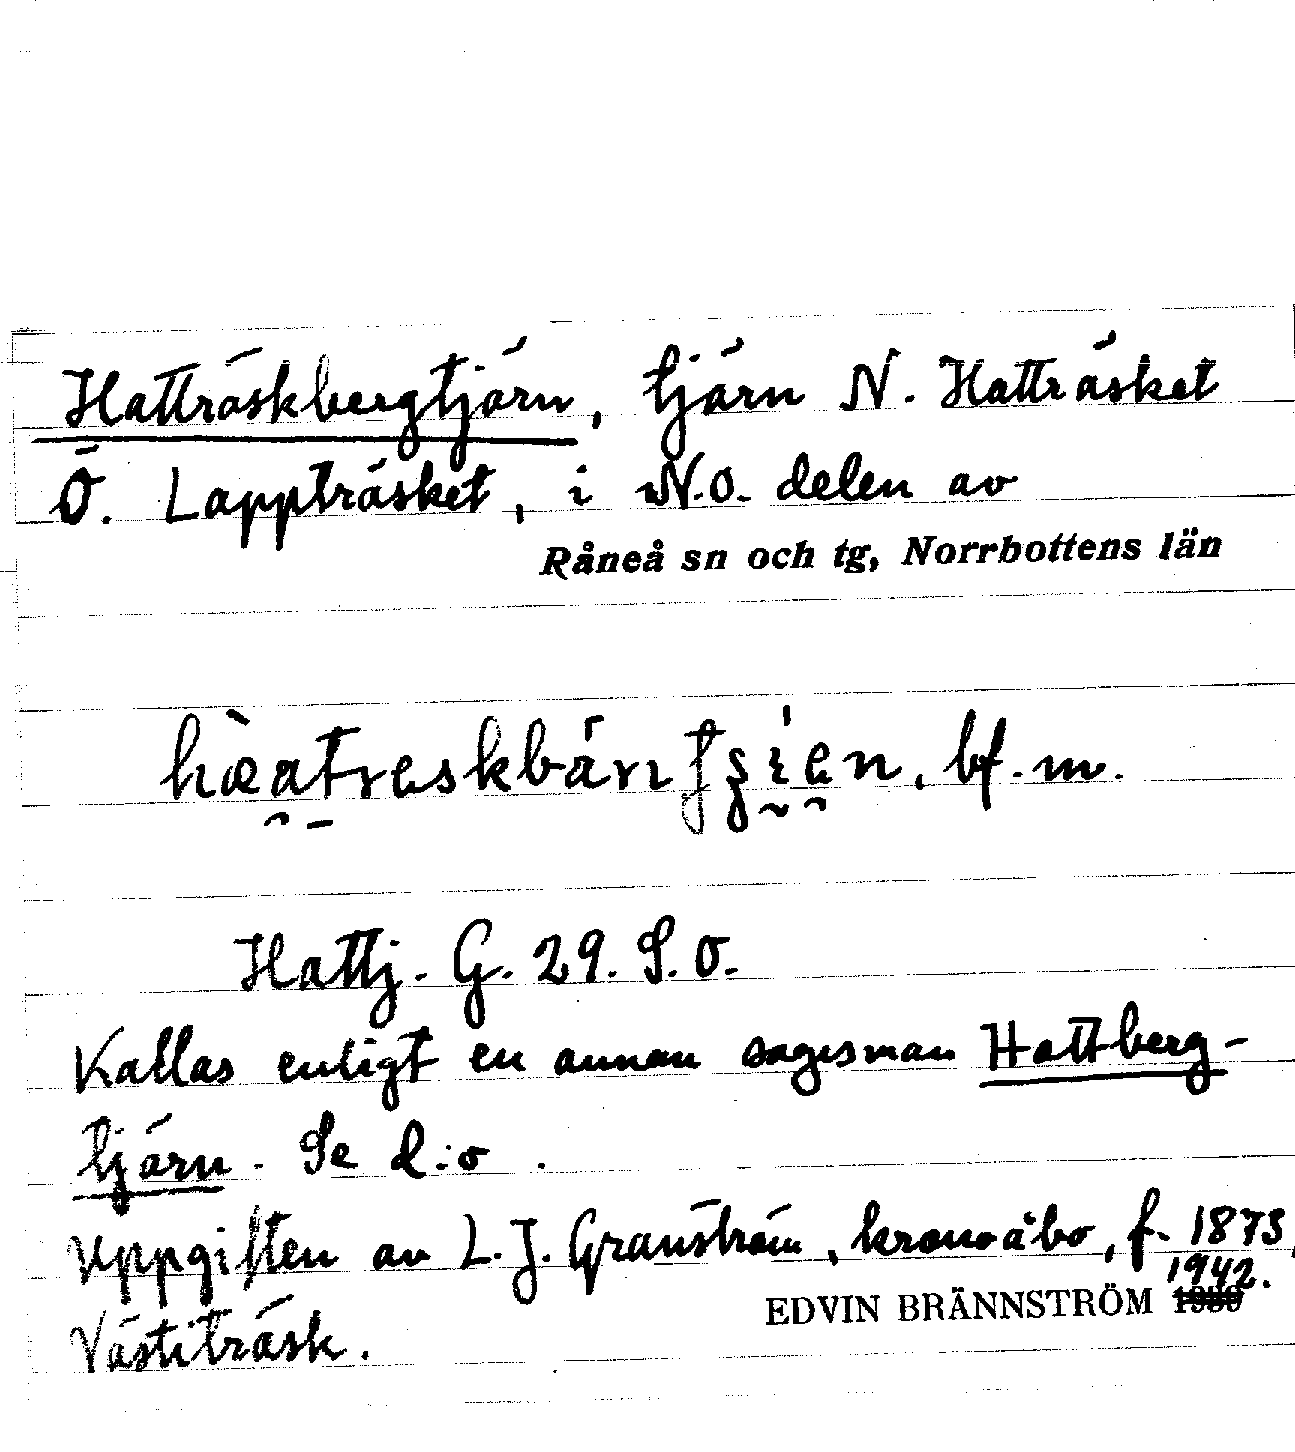 Hatträskbergtjärn, tjärn N. Hatträsket
Ö. Lappträsket, i N.O. delen av
Råneå sn och tg, Norrbottens län
bf. m.
Hattj. G. 29. S.O.
Kallas enligt en annan sagesman Hattberg-
tjärn. Se d:o.
Uppgiften av L. J. Granström, kronoåbo, f. 1873,
1942.
EDVIN BRÄNNSTRÖM 1930
Västiträsk.